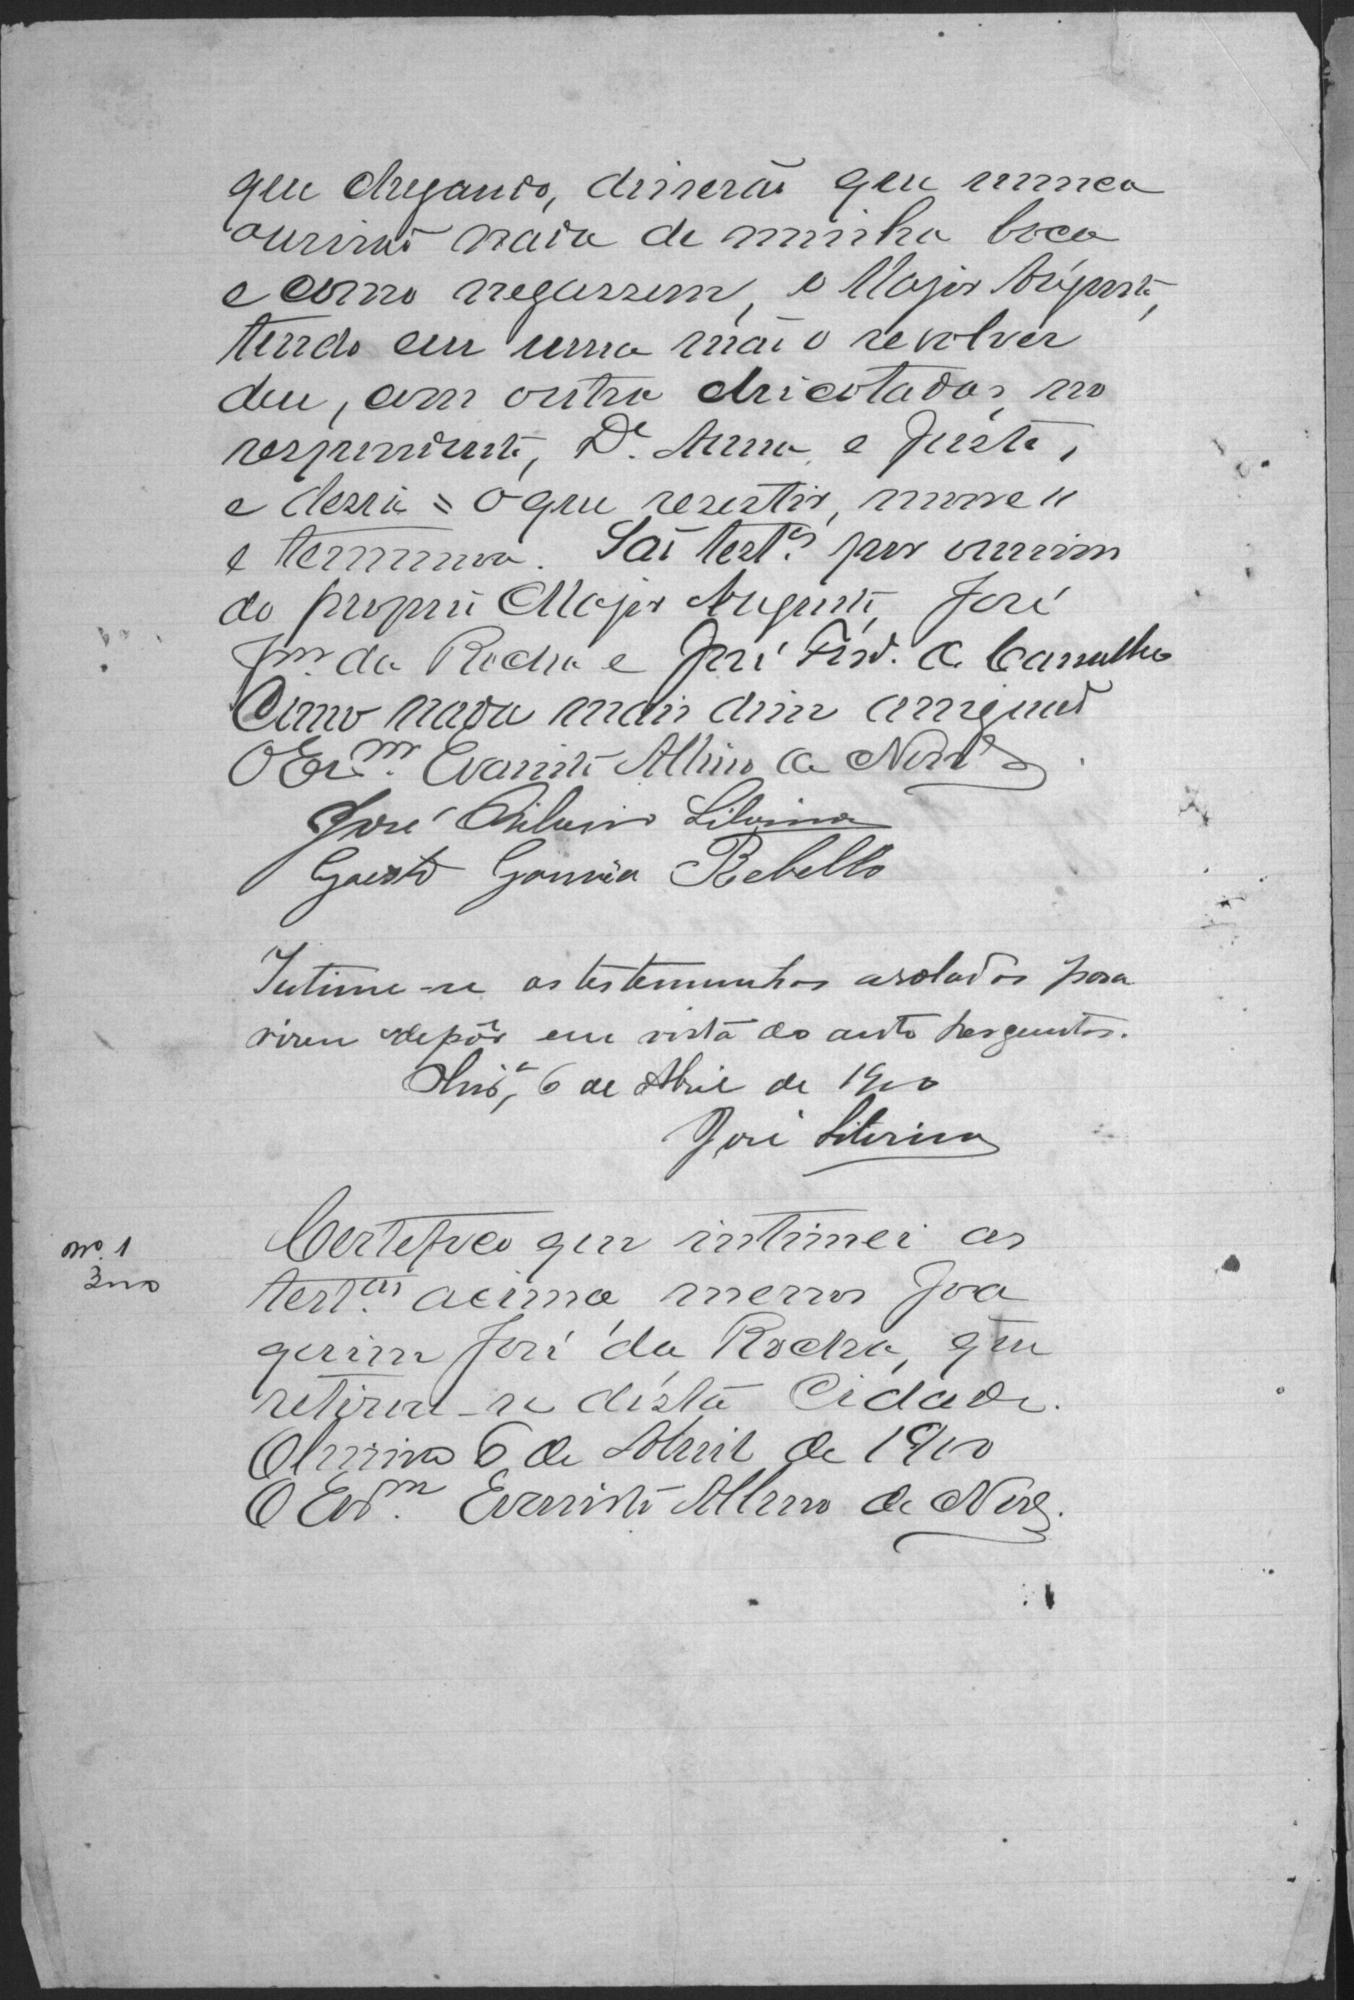 que chegando, disserão que nunca
ouvirão nada de minha boca
e como negassem, o Major Augusto,
tendo em uma mão o revolver
deu, com outra chicotadas no
respondente, D.ª Anna e Justo,
e desia = o que resestir, morre "
e terminou. São test.as por ouvirem
do proprio Major Augusto, José
Jm. da Rocha e José Ferd. de Carvalho
Como nada mais disse assignão
O Escm. Evaristo Albino de
José Silvino
Justo Gouvêa Rebello
Intime-se as testemunhas aroladas para
virem depôr em vista do auto perguntas.
6 de Abril de 1900
José
nº. 1
Certefico que intimei as
test.as acima menos Joa
quim José da Rocha, que
retirou-se désta Cidade.
6 de Abril de 1900
O Escm. Evaristo Albino de